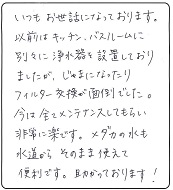 いつもお世話になっております。
以前はキッチン、バスルームに
別々に浄水器を設置しており
ましたが、じゃまになったり
フィルター交換が面倒でした。
今は全てメンテナンスしてもらい
非常に楽です。メダカの水も
水道からそのまま使えて
便利です。助かっております！